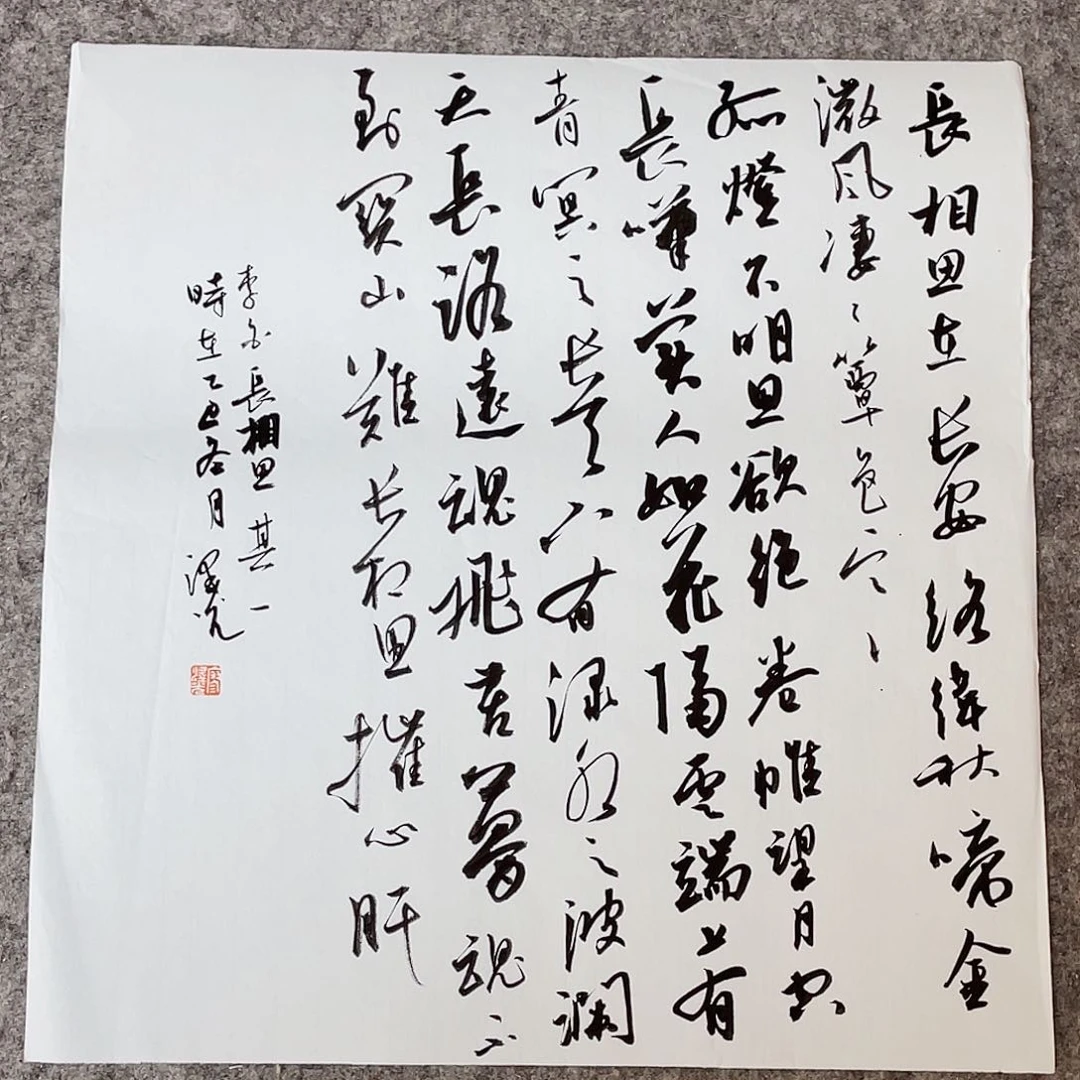 長相思在长安络緯秋啼金
微风凄〻簟色寒〻
孤燈不明思欲絕卷帷望月空
長嘆美人如花隔雲端上有
青冥之长天下有渌水之波瀾
天長路遠魂飛苦夢魂不
到關山難长相思摧心肝
李白長相思其一
時在乙巳冬月